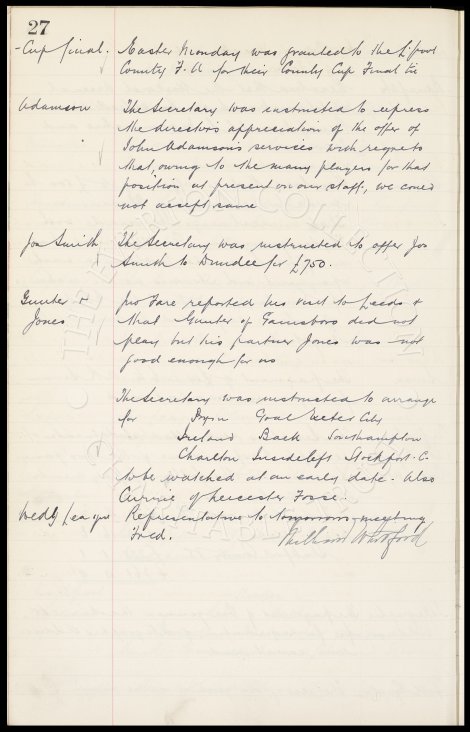 27
- Cup final. Easter Monday was granted to the L'pool
County F.A for their County Cup Final tie
Adamson The Secretary was instructed to express
the directors appreciation of the offer of
John Adamson's services with regrets
that, owing to the many players for that
position at present on our staff, we could
not accept same
Jos Smith The Secretary was instructed to offer Jos
Smith to Dundee for £750.
Gunter & Fare reported his visit to Leeds &
Jones that Gunter of Gainsboro did not
play but his partner Jones was not
good enough for us
The Secretary was instructed to arrange
for Dixon Goal Exeter City
Ireland Back Southampton
Charlton Insideleft Stockport. C.
to be watched at an early date. Also
Currie of Leicester Fosse.
Wed League Representative to tomorrows meeting
Fred. William Whitford
THE EVERTON COLLECTION
CHARITABLE